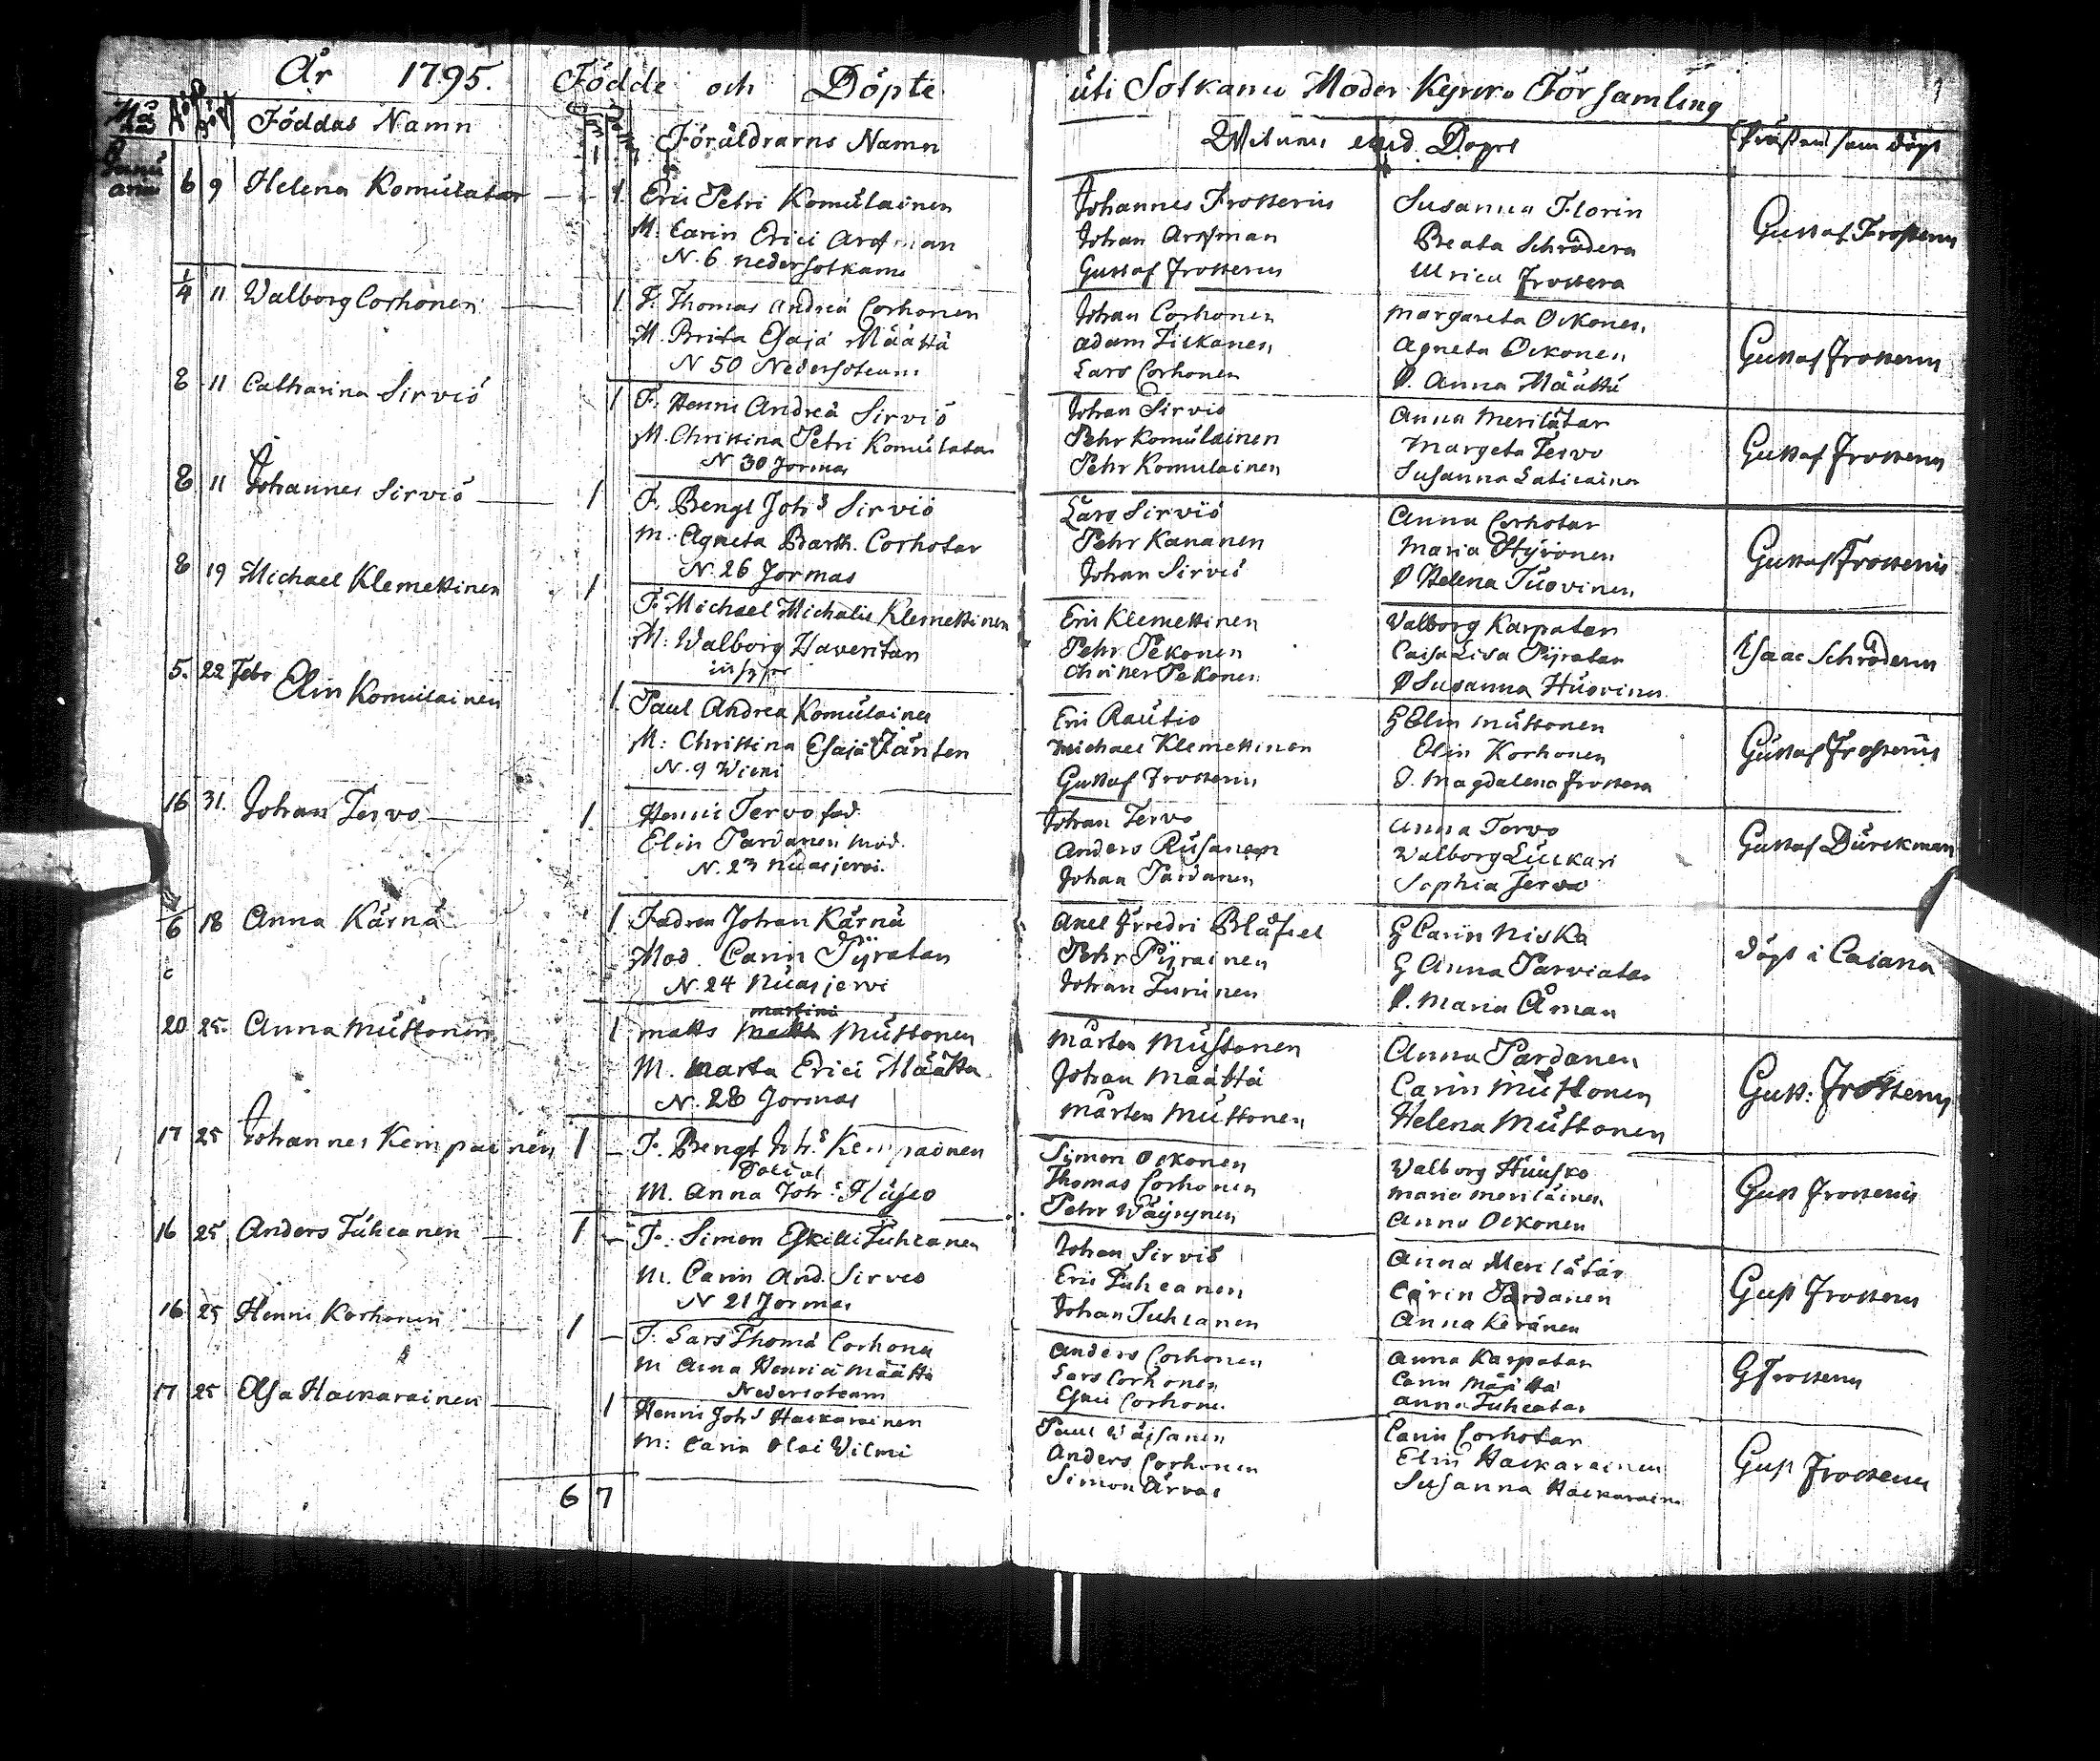 År 1795. Födde och Döpte uti Sotkamo Moder Kyrko Församling
Månad Föddas Namn Föräldrarns Namn Witnen wid Dopet Prästen som döpt
Januarius
6 9 Helena Komulatar 1. Eric Petri Komulainen Johannes Frosterus Susanna Florin Gustaf Frosterus
M. Carin Erici Johan Beata Schrödera
N. 6 nedersotkamo Gustaf Frosterus Ulrica Frostera
1/4 11 Walborg Corhonen 1 F. Thomas Andreä Corhonen Johan Corhonen Margareta Ockonen Gustaf Frosterus
M. Brita Esajä Määttä Adam Agneta Ockonen
N 50 Nedersotcam Lars Corhonen P. Anna Määttä
8 11 Catharina Sirviö 1 F. Henric Andreä Sirviö Johan Sirviö Anna Merilätar Gustaf Frosterus
M. Christina Petri Komulatar Pehr Komulainen Margeta Tervo
N. 30 Jormas Pehr Komulainen Susanna
8 11 Johannes Sirviö 1 F. Bengt Johs Sirviö Lars Sirviö Anna Corhotar Gustaf Frosterus
M. Agneta Barth. Corhotar Pehr Kananen Maria Hyvönen
N. 26 Jormas Johan Sirviö P Helena Tuovinen
8 19 Michael Klemettinen 1 F. Michael Michaelis Klemettinen Eric Klemettinen Walborg Karpatar Isaac Schröderus
M: Walborg Pehr Pekonen Caisa Lisa Pyratar
Christer Pekonen P Susanna Huovinen
5. 22 Febr Elin Komulainen 1. Paul Andreä Komulainen Eric Rautio G Elin Mustonen Gustaf Frosterus
M: Christina Esajä Michael Klemettinen Elin Korhonen
N. 9 Wieni Gustaf Frosterus P. Magdalena Frostera
16 31. Johan Tervo 1. Henric Tervo fad. Johan Tervo Anna Torvo Gustaf Dürckman
Elin Pardanen mod. Anders Rusanen Walborg
N. 23 Nuasjervi. Johan Pardanen Sophia Tervo
6 18 Anna Kärnä 1 Fadren Johan Kärnä Axel Fredri Blåfiel G Carin Niska döpt i Cajana
Mod. Carin Pyratar Pehr Pyrainen G Anna Parviatar
N. 24 Nuasjervi Johan Turunen P. Maria Åman
martini
20 25. Anna Mustonen 1 Matts Mustonen Mårten Mustonen Anna Pardanen Gust: Frosterus
M. Marta Erici Määttä Johan Määttä Carin Mustonen
N. 28 Jormas Mårten Mustonen Helena Mustonen
17 25 Johannes Kempainen 1 F. Bengt Johs Kempainen Simon Ockonen Walborg Huusko Gust Frosterus
Thomas Corhonen Maria Meriläinen
M. Anna Johs Husko Pehr Wäyrynen Anna Ockonen
16 25 Anders Tuhcanen 1 F. Simon Eskilli Tuhcanen Johan Sirviö Anna Merilätar Gust Frosterus
M. Carin And. Sirviö Eric Tuhcanen Carin Pardanen
N 21 Jormas Johan Tuhcanen Anna Keränen
16 25 Henric Korhonen 1 F. Lars Thomä Corhonen Anders Corhonen Anna Karpatar G Frosterus
M Anna Henrici Määttä Lars Corhonen Carin Määttä
Nedersotcam Esaic Corhonen Anna Tuhcatar
17 25 Elsa Hackarainen 1 Henric Johs Hackarainen Paul Wäisänen Carin Corhotar Gust Frosterus
M: Carin Olai Wilmi Anders Corhonen Elin Hackarainen
Simon Ärväs Susanna Hackarainen
6 7